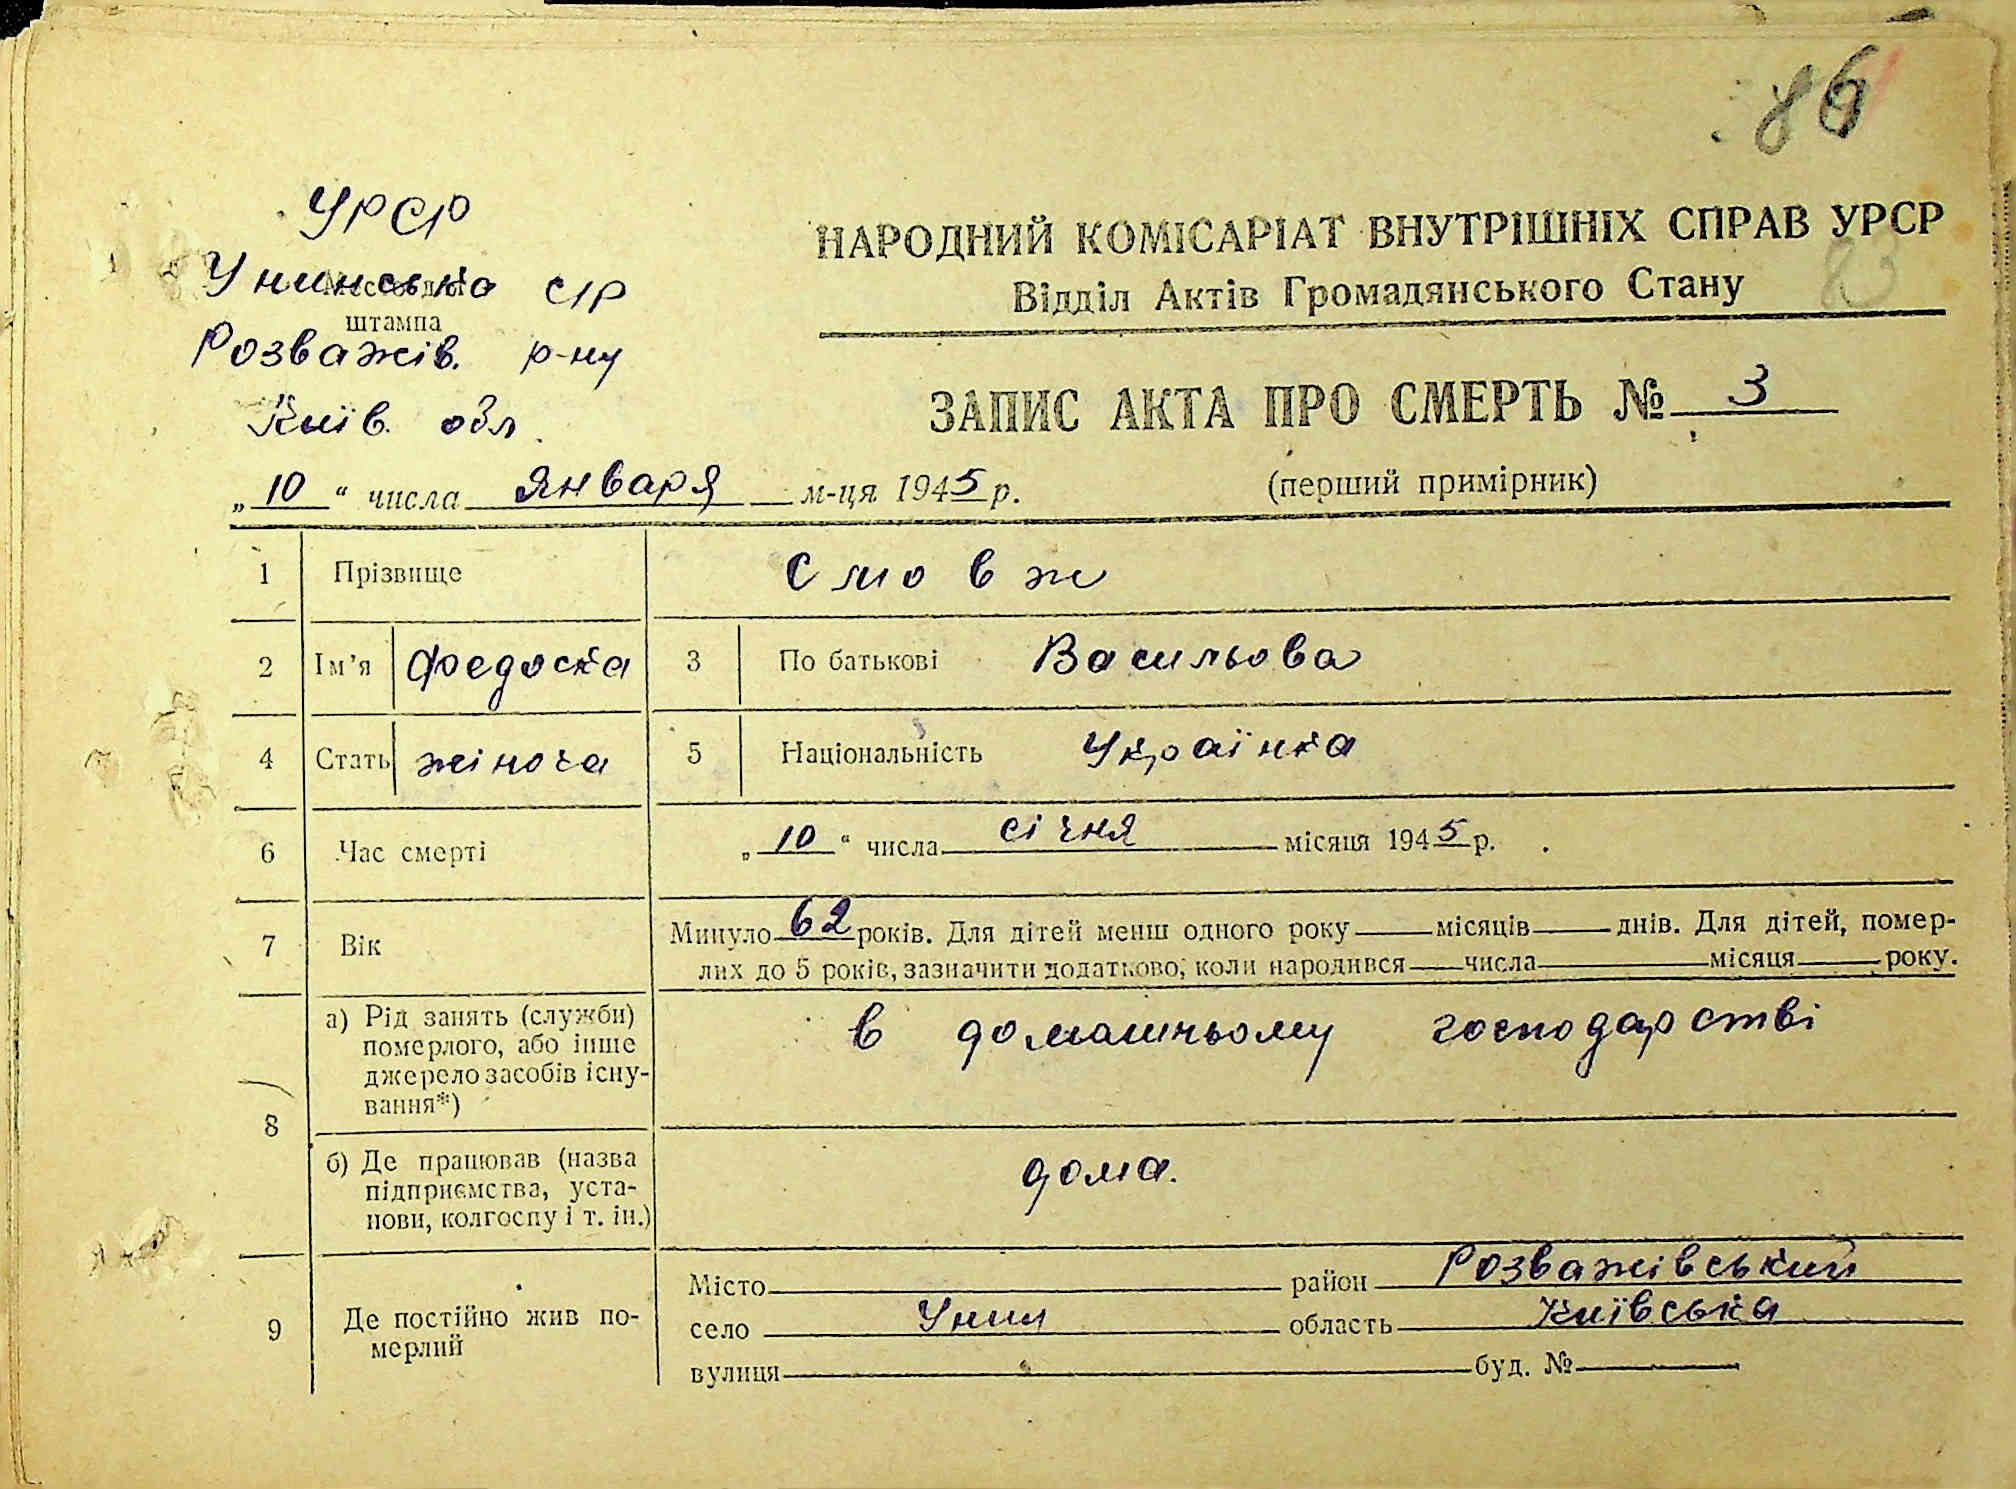 86
УРСР
НАРОДНИЙ КОМІСАРІАТ ВНУТРІШНІХ СПРАВ УРСР
83
Унинська с/р
Відділ Актів Громадянського Стану
штампа
Розважів. р-ну
ЗАПИС АКТА ПРО СМЕРТЬ № 3
Київ. обл.
„10“ числа Января м-ця 1945 р.
(перший примірник)
1 Прізвище Смовж
2 Ім’я Федоска 3 По батькові Васильова
4 Стать жіноча 5 Національність Українка
6 Час смерті „10“ числа січня місяця 1945 р.
7 Вік Минуло 62 років. Для дітей менш одного року місяців днів. Для дітей, помер-
лих до 5 років, зазначити додатково, коли народився числа місяця року.
8 а) Рід занять (служби)
померлого, або інше
джерело засобів існу-
вання*)
в домашньому господарстві
б) Де працював (назва
підприємства, уста-
нови, колгоспу і т. ін.)
дома.
9 Де постійно жив по-
мерлий
Місто район Розважівський
село Унин область Київська
вулиця буд. №